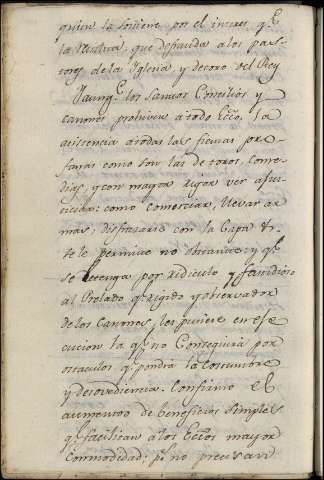 quien la sostiene por el interes q.e
la que defrauda a los pas-
tores de la Yglesia y decoro del Rey
Yaunq.e los Santos Concilios y
canones prohiven à todo Ecc.o la
asistencia a todas las fiestas pro-
fanas como son las de toros, come-
dias, y con mayor rigor ver
como comerciar, llevar ar
mas, disfrazarse con la Capa &.
se le permite no obstante y q.e
se tenga por ridiculo y fastidioso
al Prelado q.e rigido y observador
de los Canones, los pusiere en exe
cucion la q.e no Conseguirà por
ostaculos q.e pondrà la costumbre
y desovediencia. Confirmo el
aumento de beneficios Simples
q.e facilitan à los Ecc.os mayor
Commodidad; p.r no precisar